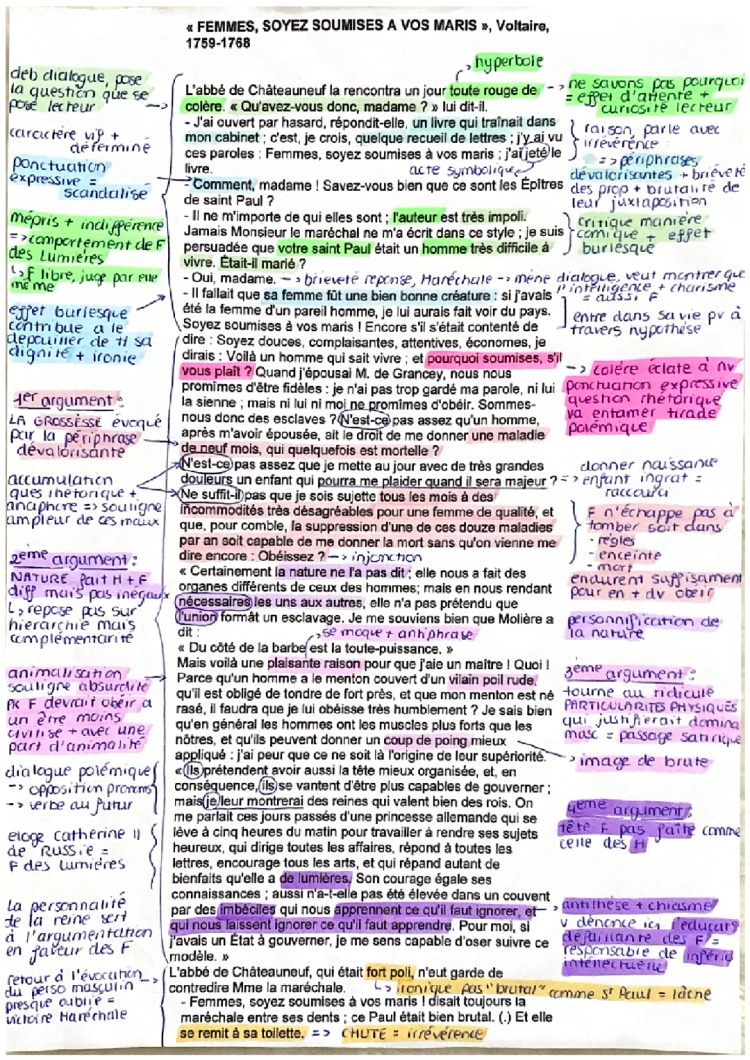 « FEMMES, SOYEZ SOUMISES A VOS MARIS », Voltaire,
1759-1768
hyperbole
deb dialogue, pose
la question que se
pose lecteur
caractère vif +
déterminé
ponctuation
expressive =
scandalisé
mépris + indifférence
=> comportement de F
des Lumières
↳ F libre, juge par elle
même
effet burlesque
contribue a le
depouiller de tt sa
dignité + ironie
1er argument :
LA GROSSESSE évoqué
par la périphrase
dévalorisante
accumulation
ques rhétorique +
anaphore => souligne
ampleur de ces maux
2eme argument :
NATURE fait H + F
diff mais pas inégaux
↳ repose pas sur
hierarchie mais
complémentarité
animalisation
souligne absurdité
pk F devrait obéir à
un être moins
civilisé + avec une
part d'animalité
dialogue polémique
-> opposition pronoms
-> verbe au futur
eloge catherine II
de Russie =
F des Lumières
La personnalité
de la reine sert
à l'argumentation
en faveur des F
retour à l'évocation
du perso masculin
presque oublié =
victoire Maréchale
L'abbé de Châteauneuf la rencontra un jour toute rouge de
colère. « Qu'avez-vous donc, madame ? » lui dit-il.
- J'ai ouvert par hasard, répondit-elle, un livre qui traînait dans
mon cabinet ; c'est, je crois, quelque recueil de lettres ; j'y ai vu
ces paroles : Femmes, soyez soumises à vos maris ; j'ai jeté le
livre.
acte symbolique
- Comment, madame ! Savez-vous bien que ce sont les Épîtres
de saint Paul ?
- Il ne m'importe de qui elles sont ; l'auteur est très impoli.
Jamais Monsieur le maréchal ne m'a écrit dans ce style ; je suis
persuadée que votre saint Paul était un homme très difficile à
vivre. Était-il marié ?
- Oui, madame. -> brieveté reponse, Maréchale -> mène dialogue, veut montrer que
l'intelligence + charisme
= aussi F
- Il fallait que sa femme fût une bien bonne créature : si j'avais
été la femme d'un pareil homme, je lui aurais fait voir du pays.
Soyez soumises à vos maris ! Encore s'il s'était contenté de
dire : Soyez douces, complaisantes, attentives, économes, je
dirais : Voilà un homme qui sait vivre ; et pourquoi soumises, s'il
vous plaît ? Quand j'épousai M. de Grancey, nous nous
promîmes d'être fidèles : je n'ai pas trop gardé ma parole, ni lui
la sienne ; mais ni lui ni moi ne promîmes d'obéir. Sommes-
nous donc des esclaves ? N'est-ce pas assez qu'un homme,
après m'avoir épousée, ait le droit de me donner une maladie
de neuf mois, qui quelquefois est mortelle ?
N'est-ce pas assez que je mette au jour avec de très grandes
douleurs un enfant qui pourra me plaider quand il sera majeur ?
Ne suffit-il pas que je sois sujette tous les mois à des
incommodités très désagréables pour une femme de qualité, et
que, pour comble, la suppression d'une de ces douze maladies
par an soit capable de me donner la mort sans qu'on vienne me
dire encore : Obéissez ? -> injonction
« Certainement la nature ne l'a pas dit ; elle nous a fait des
organes différents de ceux des hommes; mais en nous rendant
nécessaires les uns aux autres, elle n'a pas prétendu que
l'union formât un esclavage. Je me souviens bien que Molière a
dit :
se moque + antiphrase
« Du côté de la barbe est la toute-puissance. »
Mais voilà une plaisante raison pour que j'aie un maître ! Quoi !
Parce qu'un homme a le menton couvert d'un vilain poil rude,
qu'il est obligé de tondre de fort près, et que mon menton est né
rasé, il faudra que je lui obéisse très humblement ? Je sais bien
qu'en général les hommes ont les muscles plus forts que les
nôtres, et qu'ils peuvent donner un coup de poing mieux
appliqué : j'ai peur que ce ne soit là l'origine de leur supériorité.
« Ils prétendent avoir aussi la tête mieux organisée, et, en
conséquence, ils se vantent d'être plus capables de gouverner ;
mais je leur montrerai des reines qui valent bien des rois. On
me parlait ces jours passés d'une princesse allemande qui se
lève à cinq heures du matin pour travailler à rendre ses sujets
heureux, qui dirige toutes les affaires, répond à toutes les
lettres, encourage tous les arts, et qui répand autant de
bienfaits qu'elle a de lumières. Son courage égale ses
connaissances ; aussi n'a-t-elle pas été élevée dans un couvent
par des imbéciles qui nous apprennent ce qu'il faut ignorer, et
qui nous laissent ignorer ce qu'il faut apprendre. Pour moi, si
j'avais un État à gouverner, je me sens capable d'oser suivre ce
modèle. »
L'abbé de Châteauneuf, qui était fort poli, n'eut garde de
contredire Mme la maréchale.
↳ ironique pas "brutal" comme St Paul = lâche
- Femmes, soyez soumises à vos maris ! disait toujours la
maréchale entre ses dents ; ce Paul était bien brutal. (.) Et elle
se remit à sa toilette. => CHUTE = irrévérence
-> ne savons pas pourquoi
= effet d'attente +
curiosité lecteur
raison, parle avec
irrévérence :
=> périphrases
dévalorisantes + brièveté
des prop + brutalité de
leur juxtaposition
critique manière
comique + effet
burlesque
entre dans sa vie pv à
travers hypothèse
-> colère éclate à nv
ponctuation expressive
question rhétorique
va entamer tirade
polémique
donner naissance
=> enfant ingrat =
raccourci
F n'échappe pas à
tomber soit dans
- règles
- enceinte
- mort
endurent suffisament
pour en + dv obeir
personnification de
la nature
3eme argument :
tourne au ridicule
PARTICULARITÉS PHYSIQUES
qui justifierait domina
masc = passage satirique
-> image de brute
4eme argument :
tête F pas faite comme
celle des H
-> antithèse + chiasme
V dénonce ici l'educat°
défaillante des F =
responsable de
intellectuelle